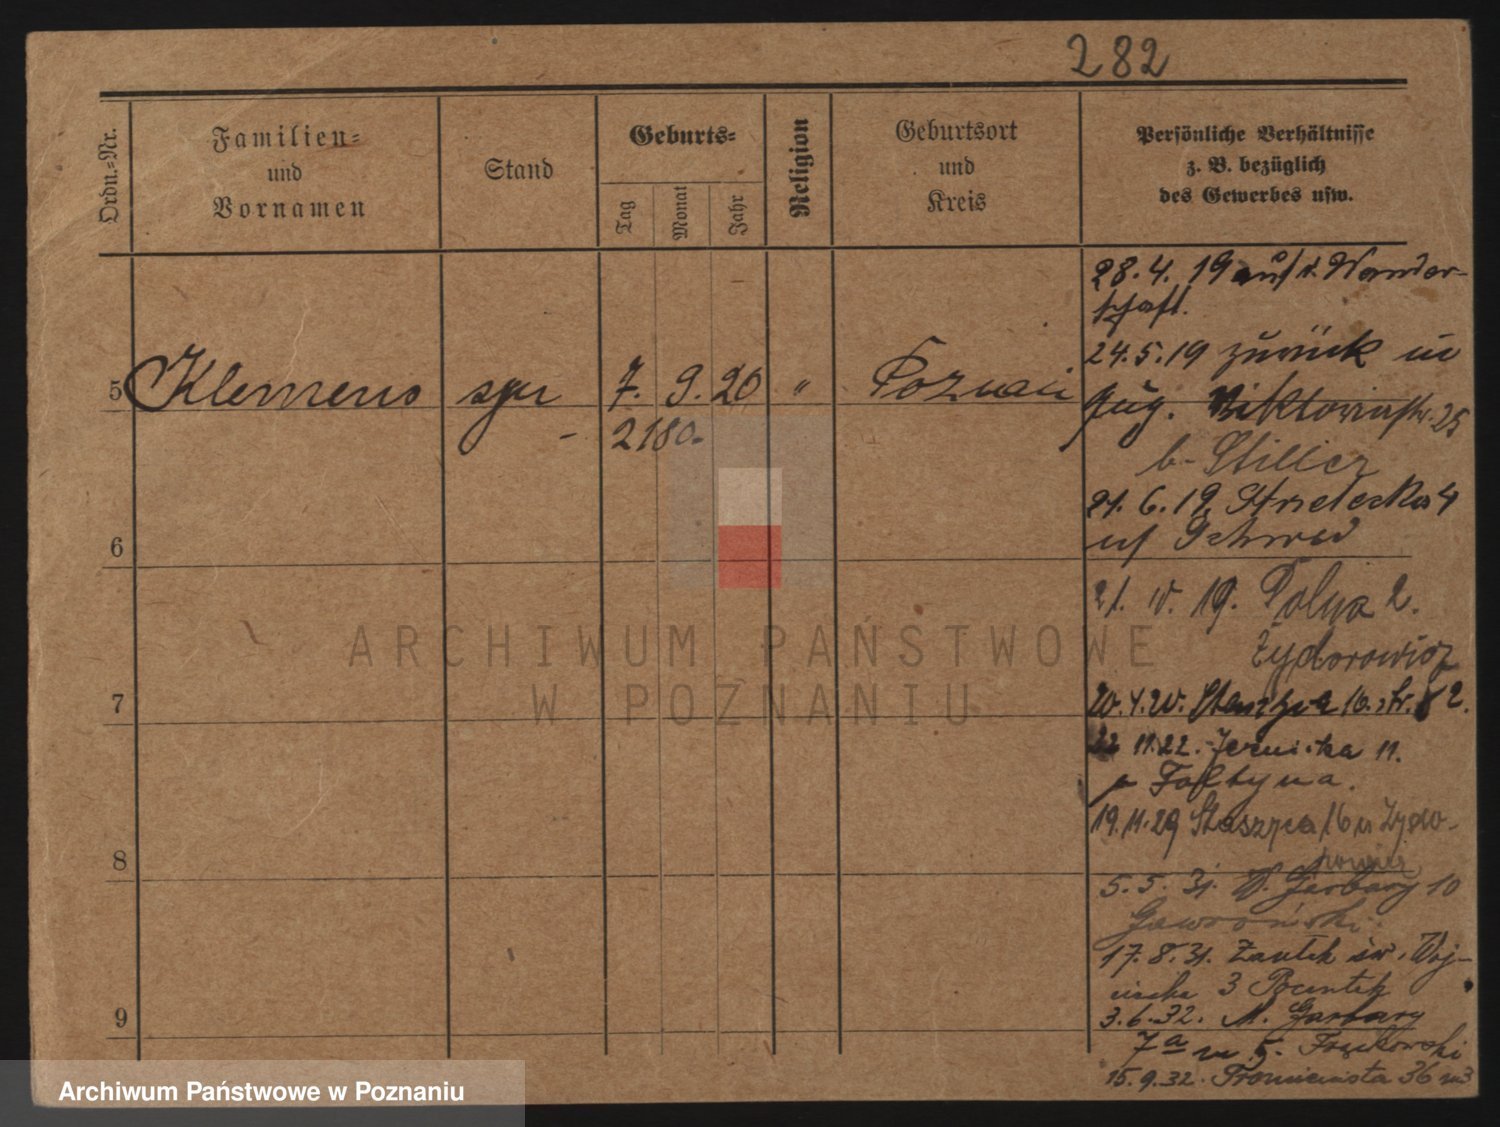 282
Ordn.-Nr.
Familien-
und
Vornamen
Stand
Geburts-
Tag
Monat
Jahr
Religion
Geburtsort
und
Kreis
Persönliche Verhältnisse
z. B. bezüglich
des Gewerbes usw.
28.4.19 auf d. Wander-
schaft.
24.5.19 zurück
5 Klemens syn 7. 9. 20 " Poznań
Viktoriastr. 25
2180.
b. Stiller
21.6.19 Strzelecka 4
6
21. IV. 19. Polna 2.
Żydorowicz
20.4.20. Staszyca 16. 2.
7
22 11.22. 11.
Foltyna.
19.11.29 Staszyca 16 u Żydo-
rowicz
8
5.5.31. W. Garbary 10
Gawroński.
17.8.31. Zaułek św. Woj-
ciecha 3
3.6.32. M. Garbary
9
7a m 5.
15.9.32. 36 m3
ARCHIWUM PAŃSTWOWE
W POZNANIU
Archiwum Państwowe w Poznaniu